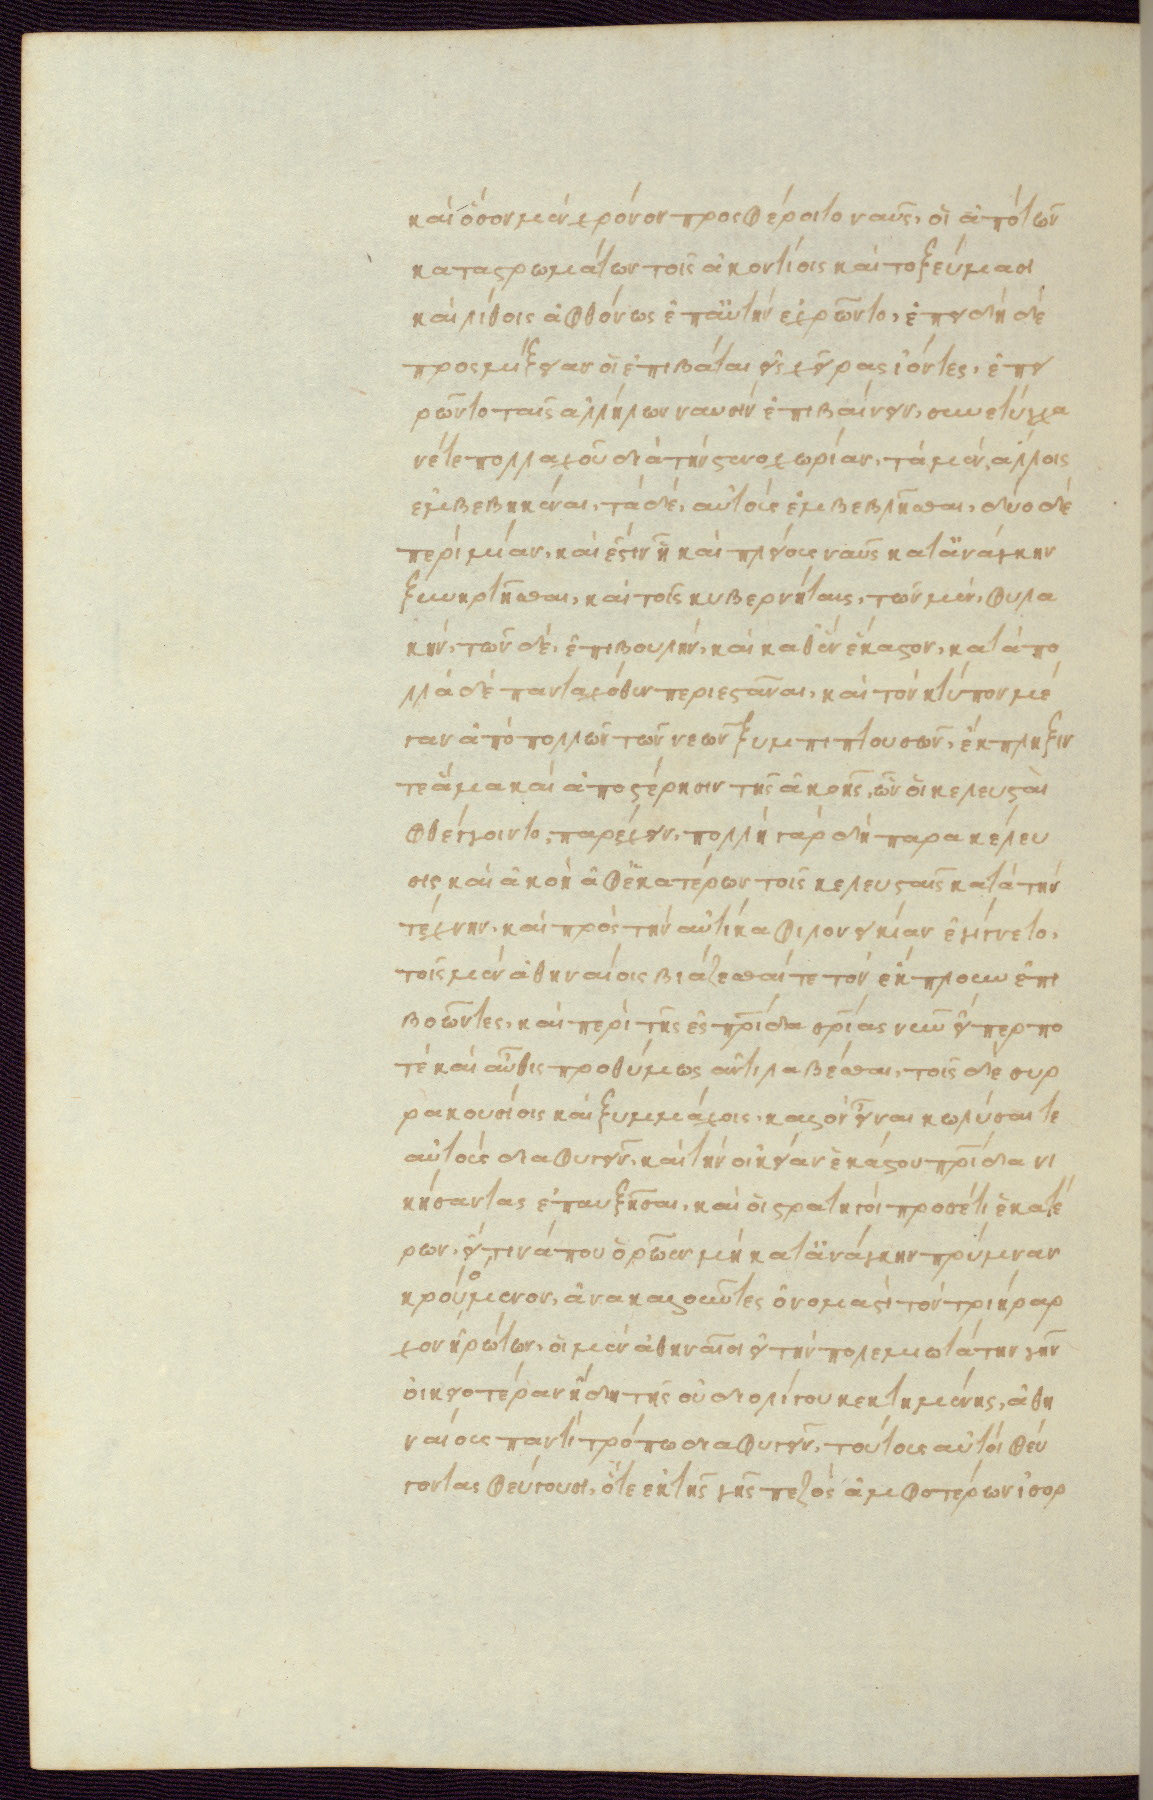 καὶ ὅσον μὲν χρόνον προσφέροιτο ναῦς, οἱ ἀπὸ τῶν
καταστρωμάτων τοῖς ἀκοντίοις καὶ τοξεύμασι
καὶ λίθοις ἀφθόνως ἐπ' αὐτὴν ἐχρῶντο, ἐπειδὴ δὲ
προσμίξειαν οἱ ἐπιβάται εἰς χεῖρας ἰόντες, ἐπει
ρῶντο ταῖς ἀλλήλων ναυσὶν ἐπιβαίνειν, συνετύγχα
νέ τε πολλαχοῦ διὰ τὴν στενοχωρίαν, τὰ μὲν, ἄλλοις
ἐμβεβηκέναι, τὰ δὲ, αὐτοὺς ἐμβεβλῆσθαι, δύο δὲ
περὶ μίαν, καὶ ἔστιν ᾗ καὶ πλείους ναῦς κατ' ἀνάγκην
ξυνηρτῆσθαι, καὶ τοῖς κυβερνήταις, τῶν μὲν, φυλα
κὴν, τῶν δὲ, ἐπιβουλὴν, καὶ καθ' ἓν ἕκαστον, κατὰ πο
λλὰ δὲ πανταχόθεν περιεστάναι, καὶ τὸν κτύπον μέ
γαν ἀπὸ πολλῶν τῶν νεῶν ξυμπιπτουσῶν, ἔκπληξιν
τε ἅμα καὶ ἀποστέρησιν τῆς ἀκοῆς, ὧν οἱ κελευσταὶ
φθέγγοιντο, παρέχειν, πολλὴ γὰρ δὴ παρακέλευ
σις καὶ ἀκοὴ ἀφ' ἑκατέρων τοῖς κελευσταῖς κατὰ τὴν
τέχνην, καὶ πρὸς τὴν αὐτίκα φιλονεικίαν ἐγίγνετο,
τοῖς μὲν ἀθηναίοις βιάζεσθαί τε τὸν ἔκπλουν ἐπι
βοῶντες, καὶ περὶ τῆς ἐς πρίδα σρίας νῦν εἴπερ πο
τὲ καὶ αὖθις προθύμως ἀντιλαβέσθαι, τοῖς δὲ συρ
ρακουσίοις καὶ ξυμμάχοις, καλὸν εἶναι κωλῦσαι τε
αὐτοὺς διαφυγεῖν, καὶ τὴν οἰκείαν ἑκάστου πρίδα νι
κήσαντας ἐπαυξῆσαι, καὶ οἱ στρατηγοὶ προσέτι ἑκατέ
ρων, εἴ τινά που ὁρῷεν μὴ κατ' ἀνάγκην πρύμναν
κρουόμενον, ἀνακαλοῦντες ὀνομαστὶ τὸν τριήραρ
χον ἠρώτων, οἱ μὲν ἀθηναῖοι εἰ τὴν πολεμιωτάτην γῆν
οἰκειοτέραν ἤδη τῆς οὐ δι' ὀλίγου κεκτημένης, ἀθη
ναίους παντὶ τρόπῳ διαφυγεῖν, τούτους αὐτοὶ φεύ
γοντας φεύγουσι, ὅ τε ἐκ τῆς γῆς πεζὸς ἀμφοτέρων ἰσορ